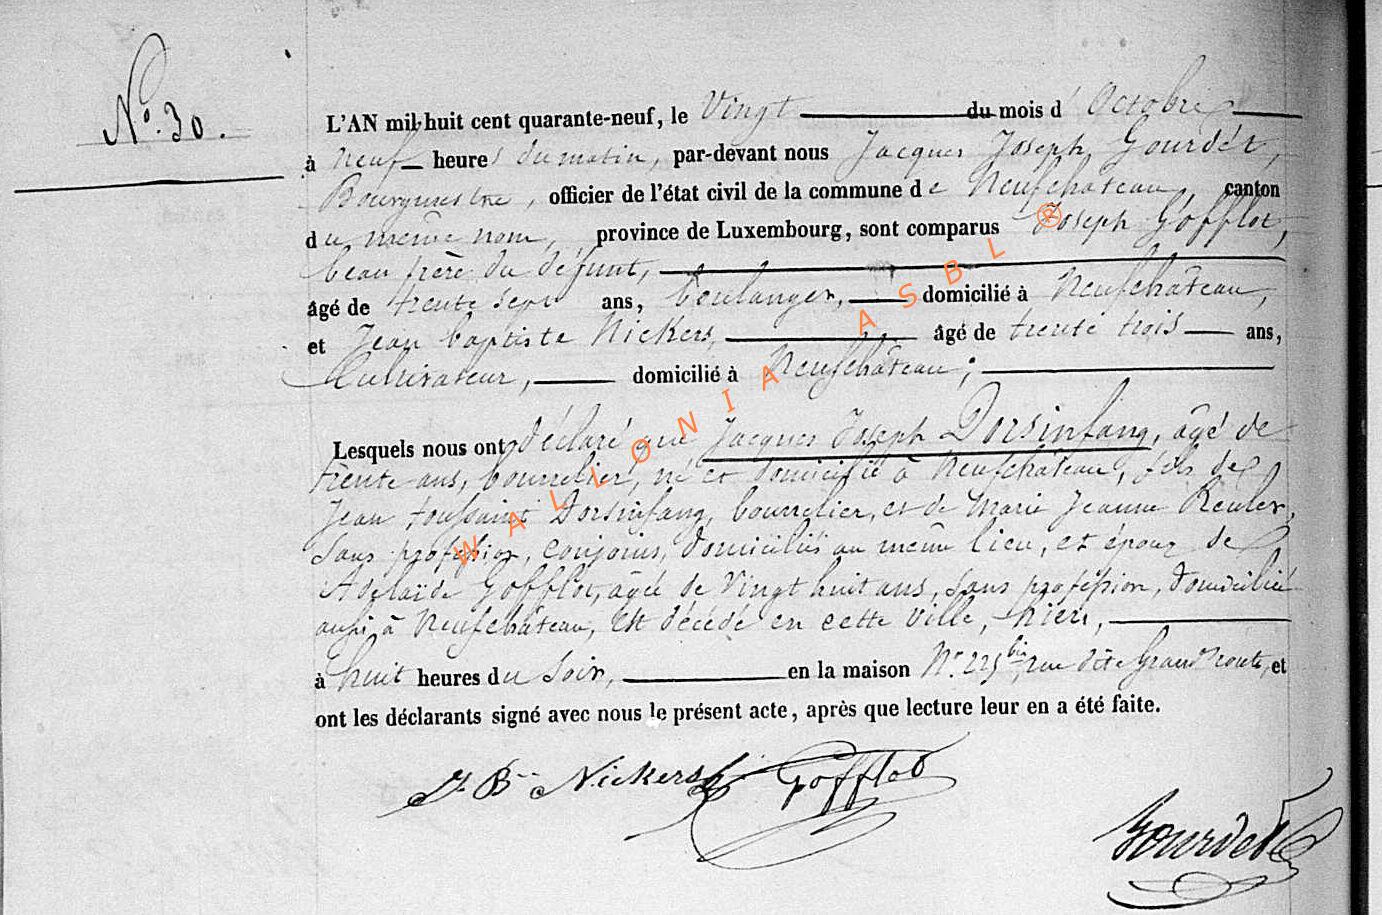 N.o 30.
L'AN mil huit cent quarante-neuf, le Vingt du mois d' Octobre
à neuf heures du matin, par-devant nous Jacques Joseph Gourdet,
Bourgmestre, officier de l'état civil de la commune de Neufchâteau, canton
du même nom, province de Luxembourg, sont comparus Joseph Gofflot,
beau frère du défunt,
âgé de trente sept ans, boulanger, domicilié à Neufchâteau,
et Jean baptiste Nickers, âgé de trente trois ans,
Cultivateur, domicilié à Neufchâteau;
Lesquels nous ont déclaré que Jacques Joseph Dorsinfang, âgé de
trente ans, bourrelier, né et domicilié à Neufchâteau, fils de
Jean toussaint Dorsinfang, bourrelier, et de Marie Jeanne Reuler,
sans profession, conjoins, domiciliés au même lieu, et époux de
Adelaïde Gofflot, âgée de Vingt huit ans, sans profession, domiciliée
aussi à Neufchâteau, est décédé en cette ville, hier,
à huit heures du soir, en la maison N.o 225 bis, rue dite Grand route, et
ont les déclarants signé avec nous le présent acte, après que lecture leur en a été faite.
J. Bte Nickers Gofflot
Gourdet
WALLONIA ASBL ®